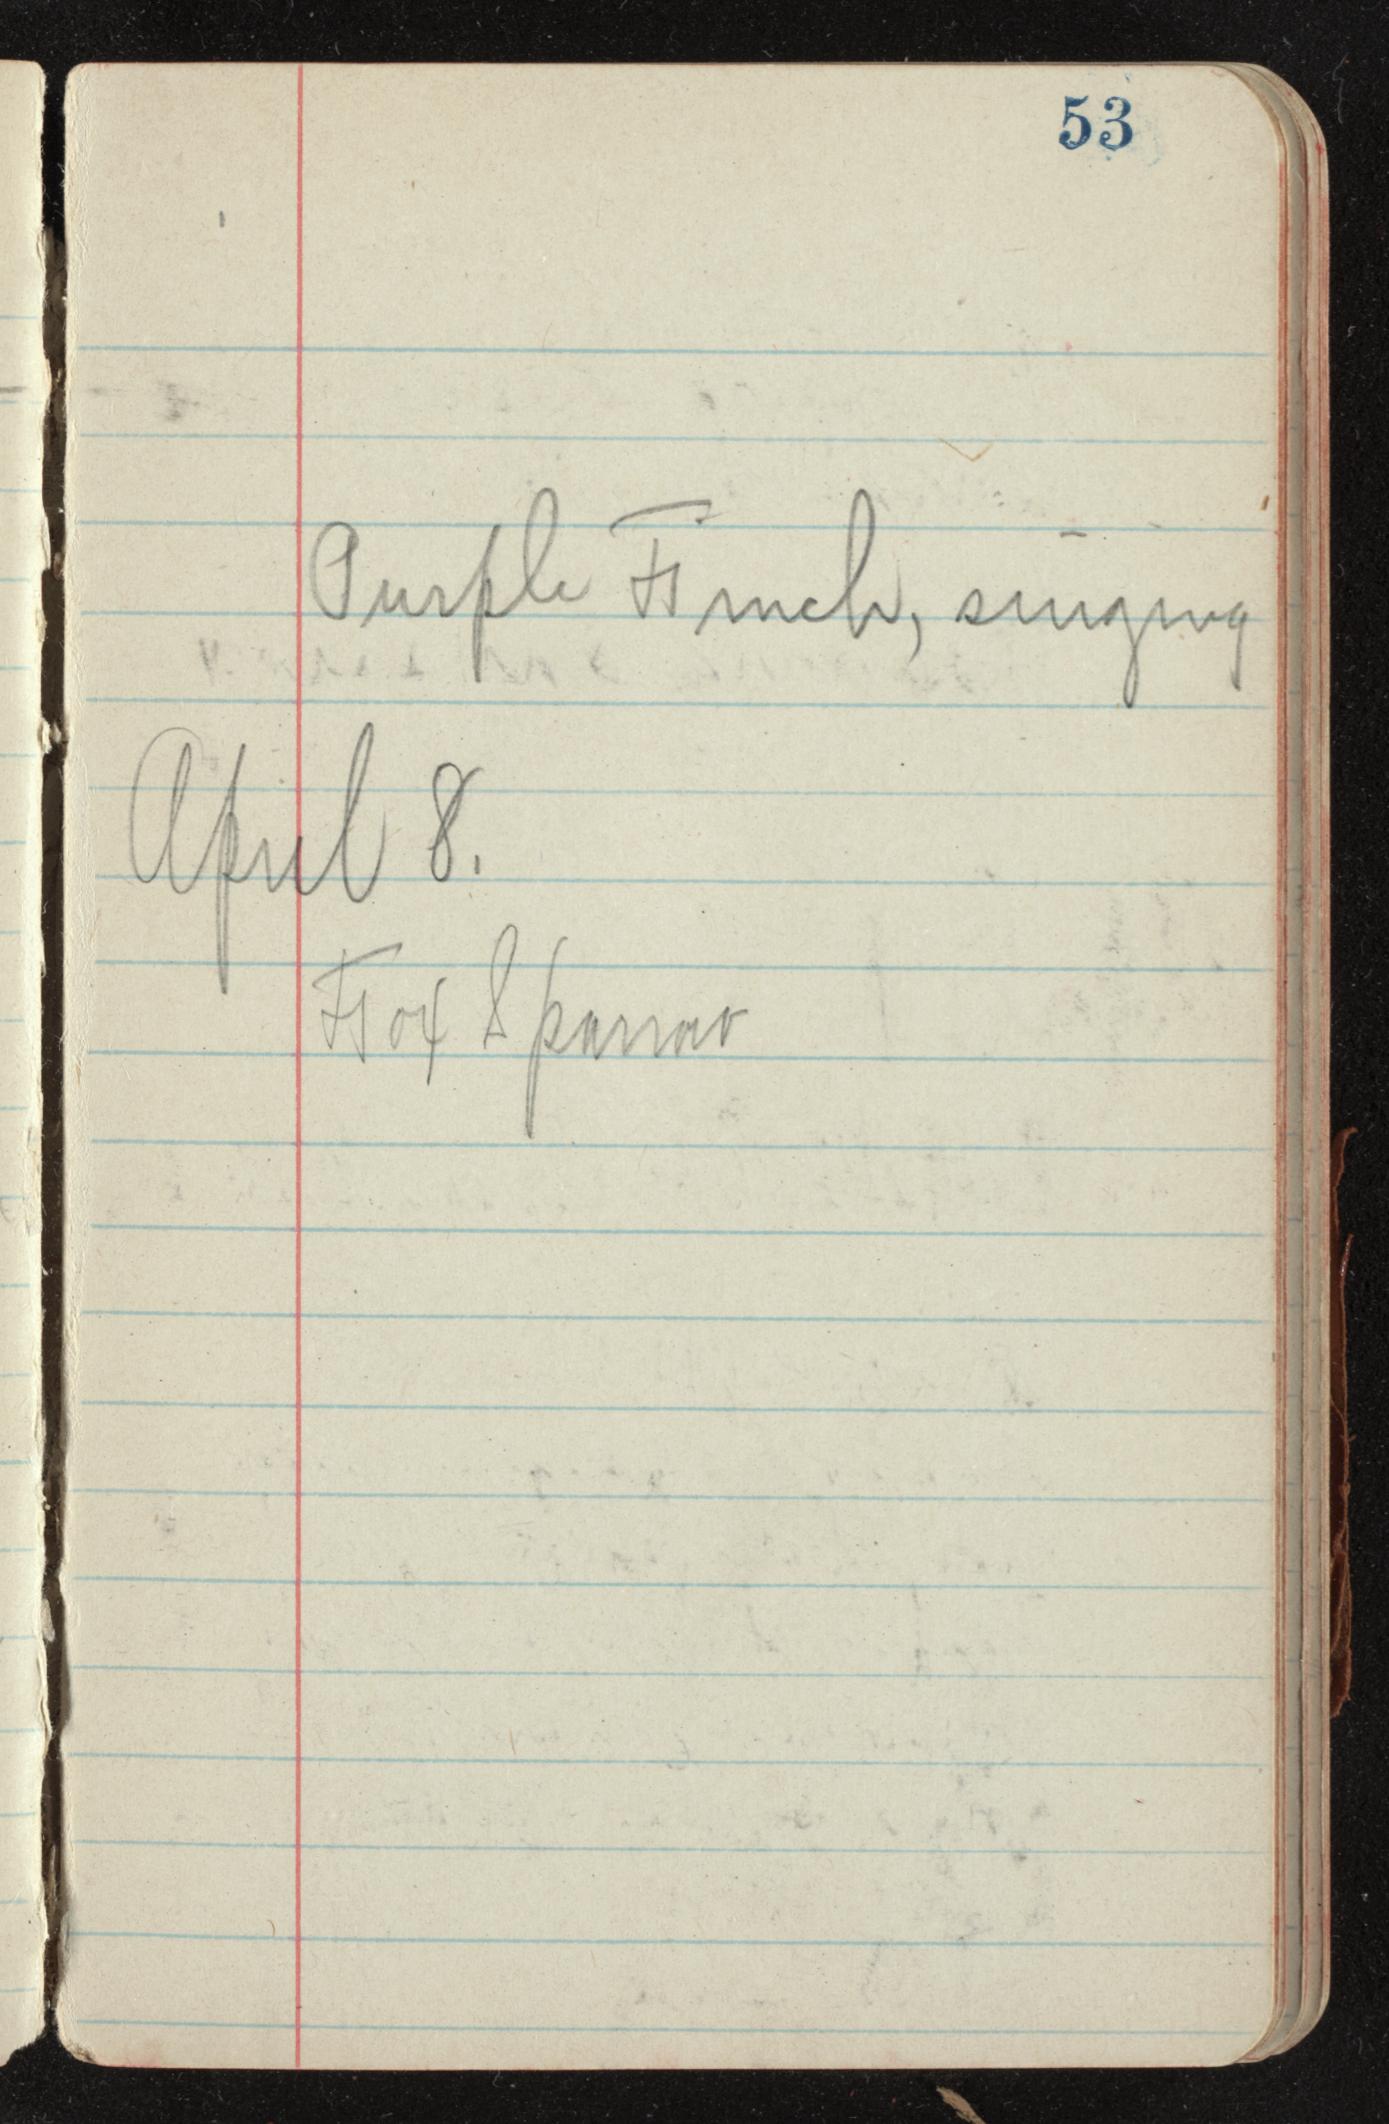 53
Purple Finch, singing
April 8.
Fox Sparrow